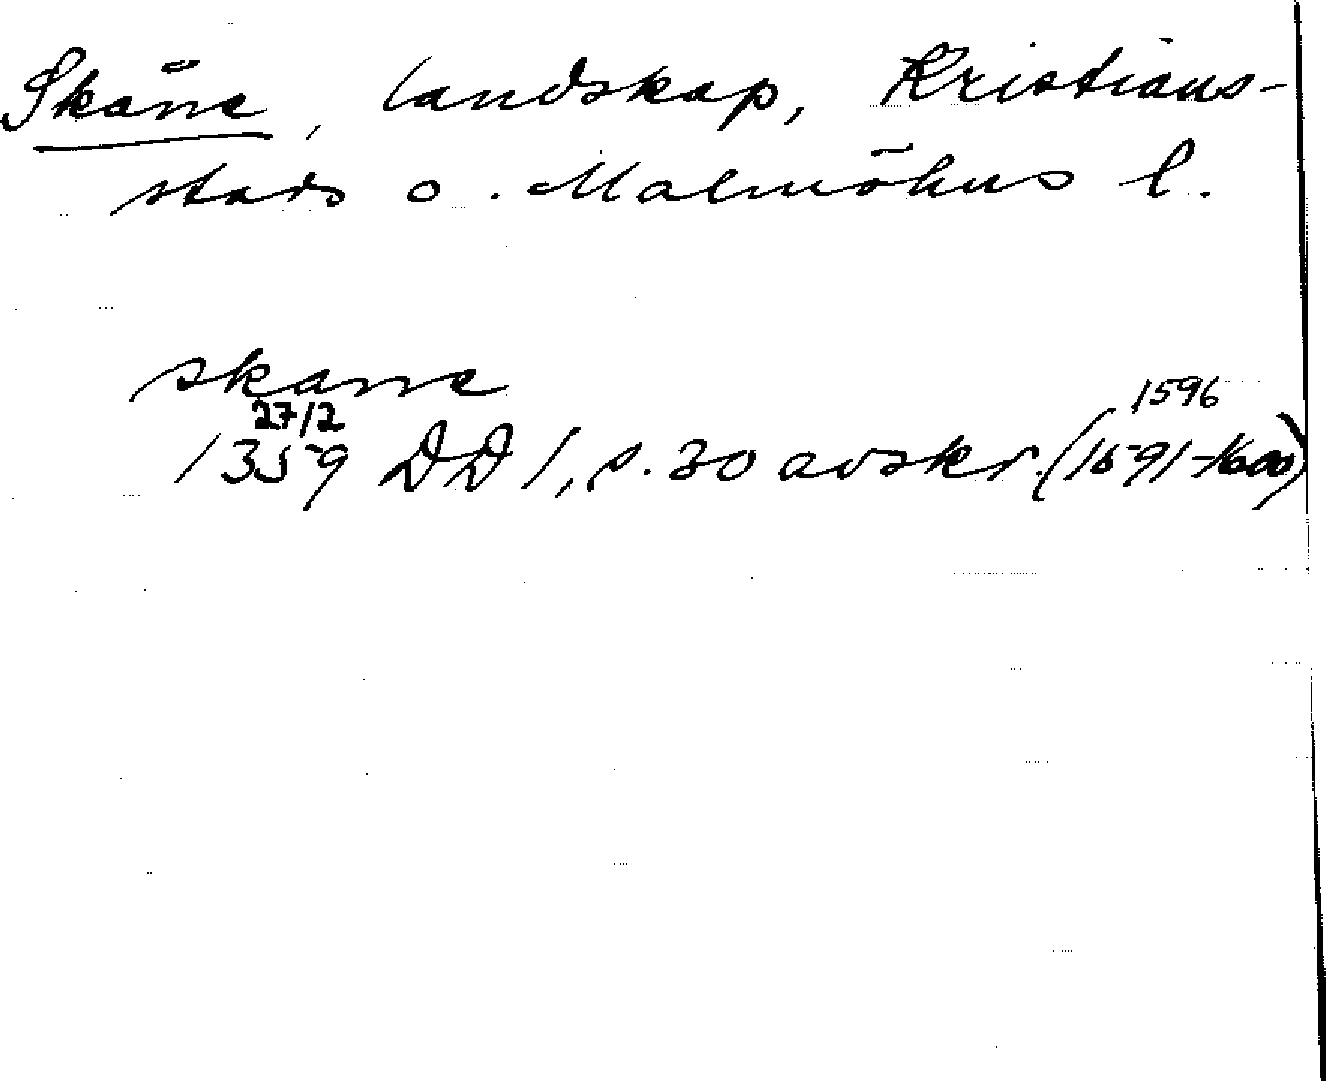 Skåne, landskap, Kristians-
stads o. Malmöhus l.
skane
27/2
1596
1359 DD 1, s. 30 avskr. (1591-1600)